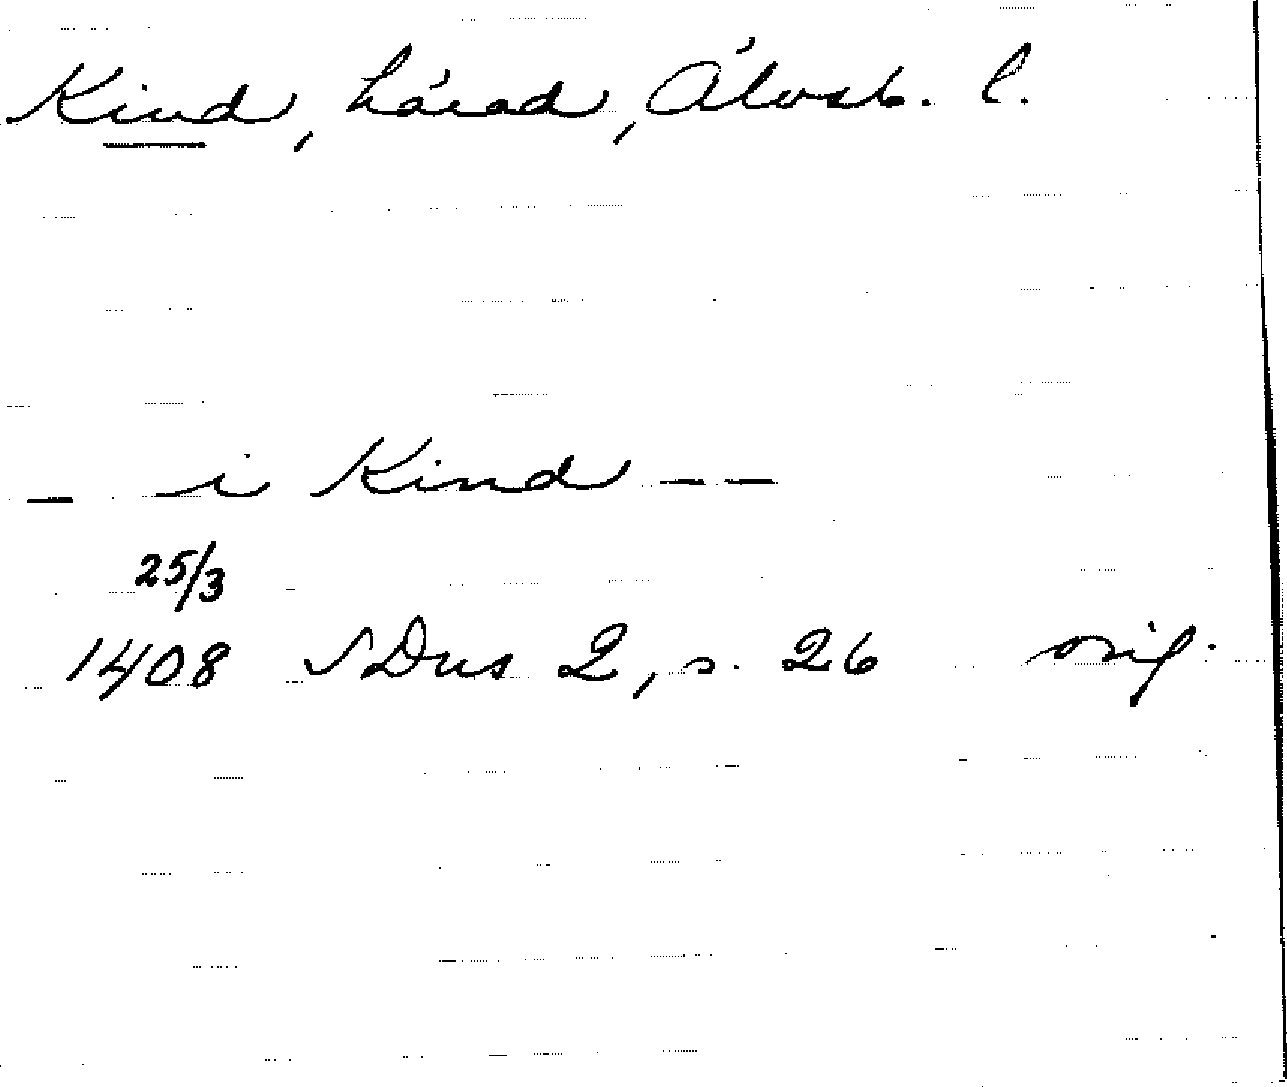 Kind, härad, Älvsb. l.
- i Kind - -
25/3
1408 SDns 2, s. 26 orig.